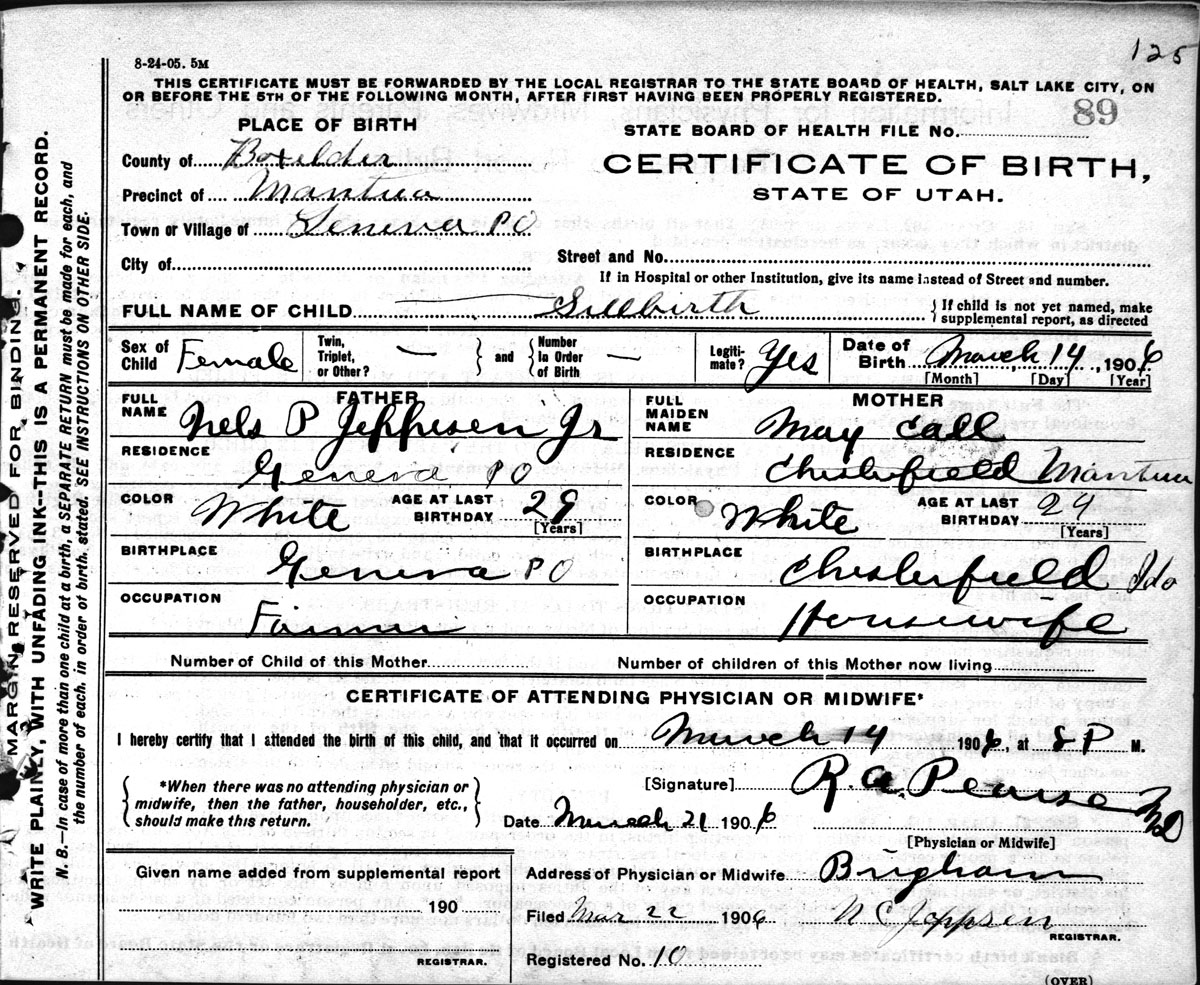 125
8-24-05. 5M
THIS CERTIFICATE MUST BE FORWARDED BY THE LOCAL REGISTRAR TO THE STATE BOARD OF HEALTH, SALT LAKE CITY, ON
OR BEFORE THE 5TH OF THE FOLLOWING MONTH, AFTER FIRST HAVING BEEN PROPERLY REGISTERED.
PLACE OF BIRTH
STATE BOARD OF HEALTH FILE No. 89
County of Boxelder
CERTIFICATE OF BIRTH,
Precinct of Mantua
STATE OF UTAH.
Town or Village of Geneva PO
City of
Street and No.
If in Hospital or other Institution, give its name instead of Street and number.
FULL NAME OF CHILD Stillbirth {If child is not yet named, make supplemental report, as directed
Sex of Child Female Twin, Triplet, or Other? — } and { Number In Order of Birth — Legiti-mate? Yes Date of Birth March 14, 1906
[Month] [Day] [Year]
FATHER
FULL NAME Nels P Jeppesen Jr
RESIDENCE Geneva PO
COLOR White AGE AT LAST BIRTHDAY 29 [Years]
BIRTHPLACE Geneva PO
OCCUPATION Farmer
MOTHER
FULL MAIDEN NAME May Call
RESIDENCE Chesterfield Mantua
COLOR White AGE AT LAST BIRTHDAY 24 [Years]
BIRTHPLACE Chesterfield Ido
OCCUPATION Housewife
Number of Child of this Mother
Number of children of this Mother now living
CERTIFICATE OF ATTENDING PHYSICIAN OR MIDWIFE*
I hereby certify that I attended the birth of this child, and that it occurred on March 14 1906, at 8 P M.
{ *When there was no attending physician or
midwife, then the father, householder, etc.,
should make this return. }
[Signature] R. A. Pearse MD
Date March 21 1906
[Physician or Midwife]
Given name added from supplemental report
190
REGISTRAR.
Address of Physician or Midwife Brigham
Filed Mar 22 1906 N C Jeppsen
REGISTRAR.
Registered No. 10
(OVER)
MARGIN RESERVED FOR BINDING.
WRITE PLAINLY, WITH UNFADING INK--THIS IS A PERMANENT RECORD.
N. B.—In case of more than one child at a birth, a SEPARATE RETURN must be made for each, and
the number of each, in order of birth, stated. SEE INSTRUCTIONS ON OTHER SIDE.